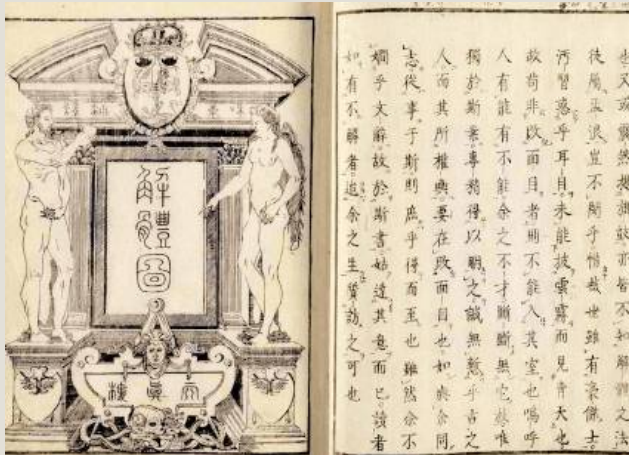 也又或然亦皆不知解體之法
徒屬孟浪豈不悶乎惜哉世雖有豪傑士
汚習惑乎耳目未能披雲霧而見青天也
故苟非改面目者則不能入其室也嗚呼
人有能有不能余之不才斷斷無它唯
獨於斯業專精得以明之誠無愧乎古之
人而其所權輿要在改面目也如與余同
志從事于斯則庶乎得而至也雖然余不
嫺乎文辭故於斯書姑達其意而已讀者
如有不解者迨余之生質訪之可也
解體圖
天眞樓